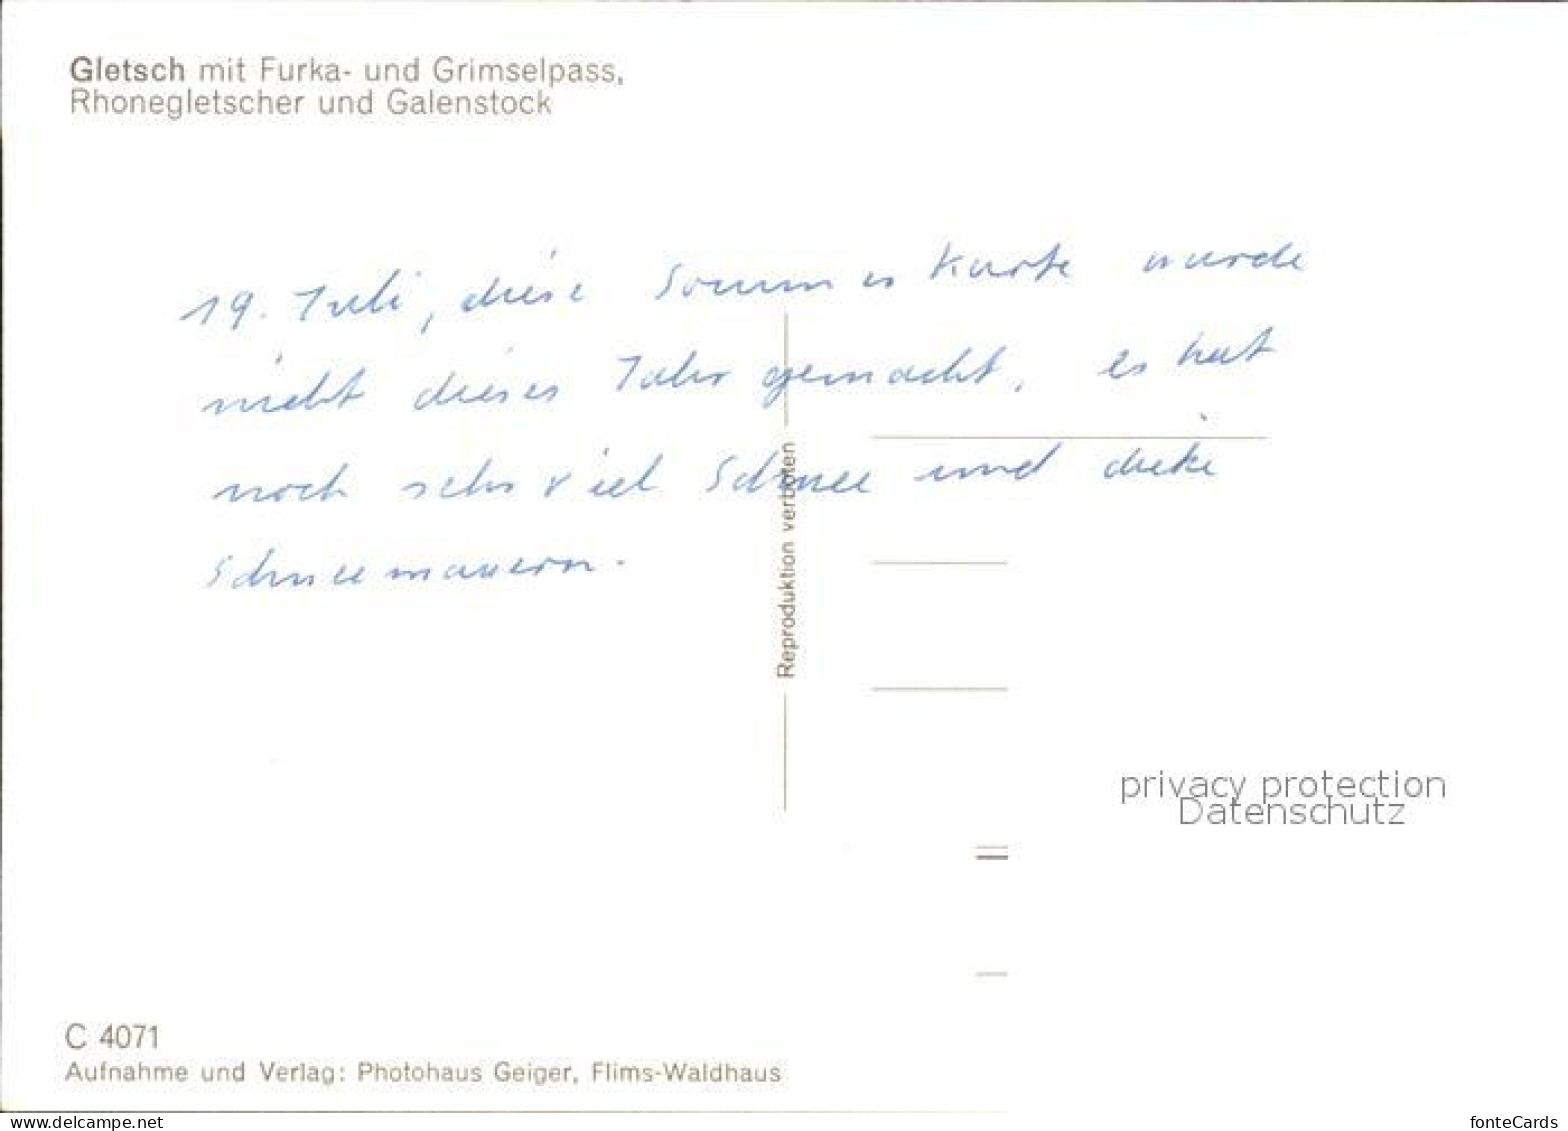 Gletsch mit Furka- und Grimselpass,
Rhonegletscher und Galenstock
19. Juli, diese Sommer Karte wurde
nicht dieses Jahr gemacht, es hat
noch sehr viel Schnee und dicke
Schneemauern.
Reproduktion verboten
privacy protection
Datenschutz
C 4071
Aufnahme und Verlag: Photohaus Geiger, Flims-Waldhaus
www.delcampe.net
fonteCards